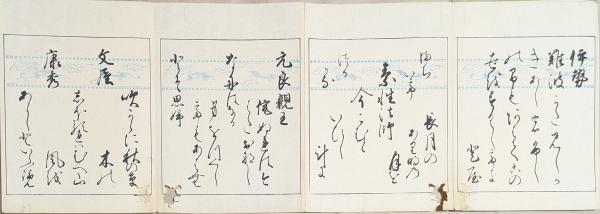 伊勢
難波かたみしか
きあしのふし
のまもあはてこの
世をすくしてよ
とや
素性法師
今こむと
いひし
はかりに
長月の
あり明の
月を
元良親王
侘ぬれは今
はたおなし
なにはなる
身をつくし
てもあはむ
とそ思ふ
文屋
康秀
吹からに秋の草
木の
しほるれはむへ山
風を
あらしといふ覧